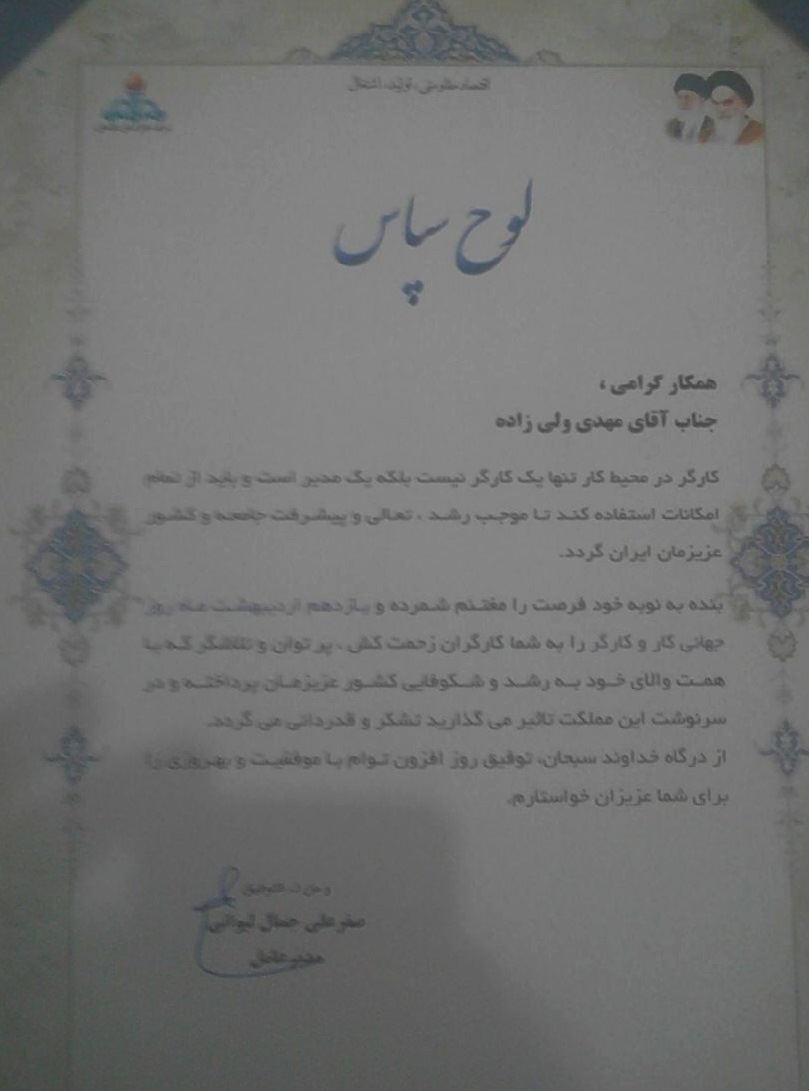 اقتصاد مقاومتی، تولید، اشتغال
لوح سپاس
همکار گرامی ،
جناب آقای مهدی ولی زاده
کارگر در محیط کار تنها یک کارگر نیست بلکه یک مدیر است و باید از تمام
امکانات استفاده کند تا موجب رشد ، تعالی و پیشرفت جامعه و کشور
عزیزمان ایران گردد.
بنده به نوبه خود فرصت را مغتنم شمرده و یازدهم اردیبهشت ماه روز
جهانی کار و کارگر را به شما کارگران زحمت کش ، پر توان و تلاشگر که با
همت والای خود به رشد و شکوفایی کشور عزیزمان پرداخته و در
سرنوشت این مملکت تاثیر می گذارید تشکر و قدردانی می گردد.
از درگاه خداوند سبحان، توفیق روز افزون توام با موفقیت و بهروزی را
برای شما عزیزان خواستارم.
و من ا... التوفیق
صفرعلی جمال لیوانی
مدیرعامل